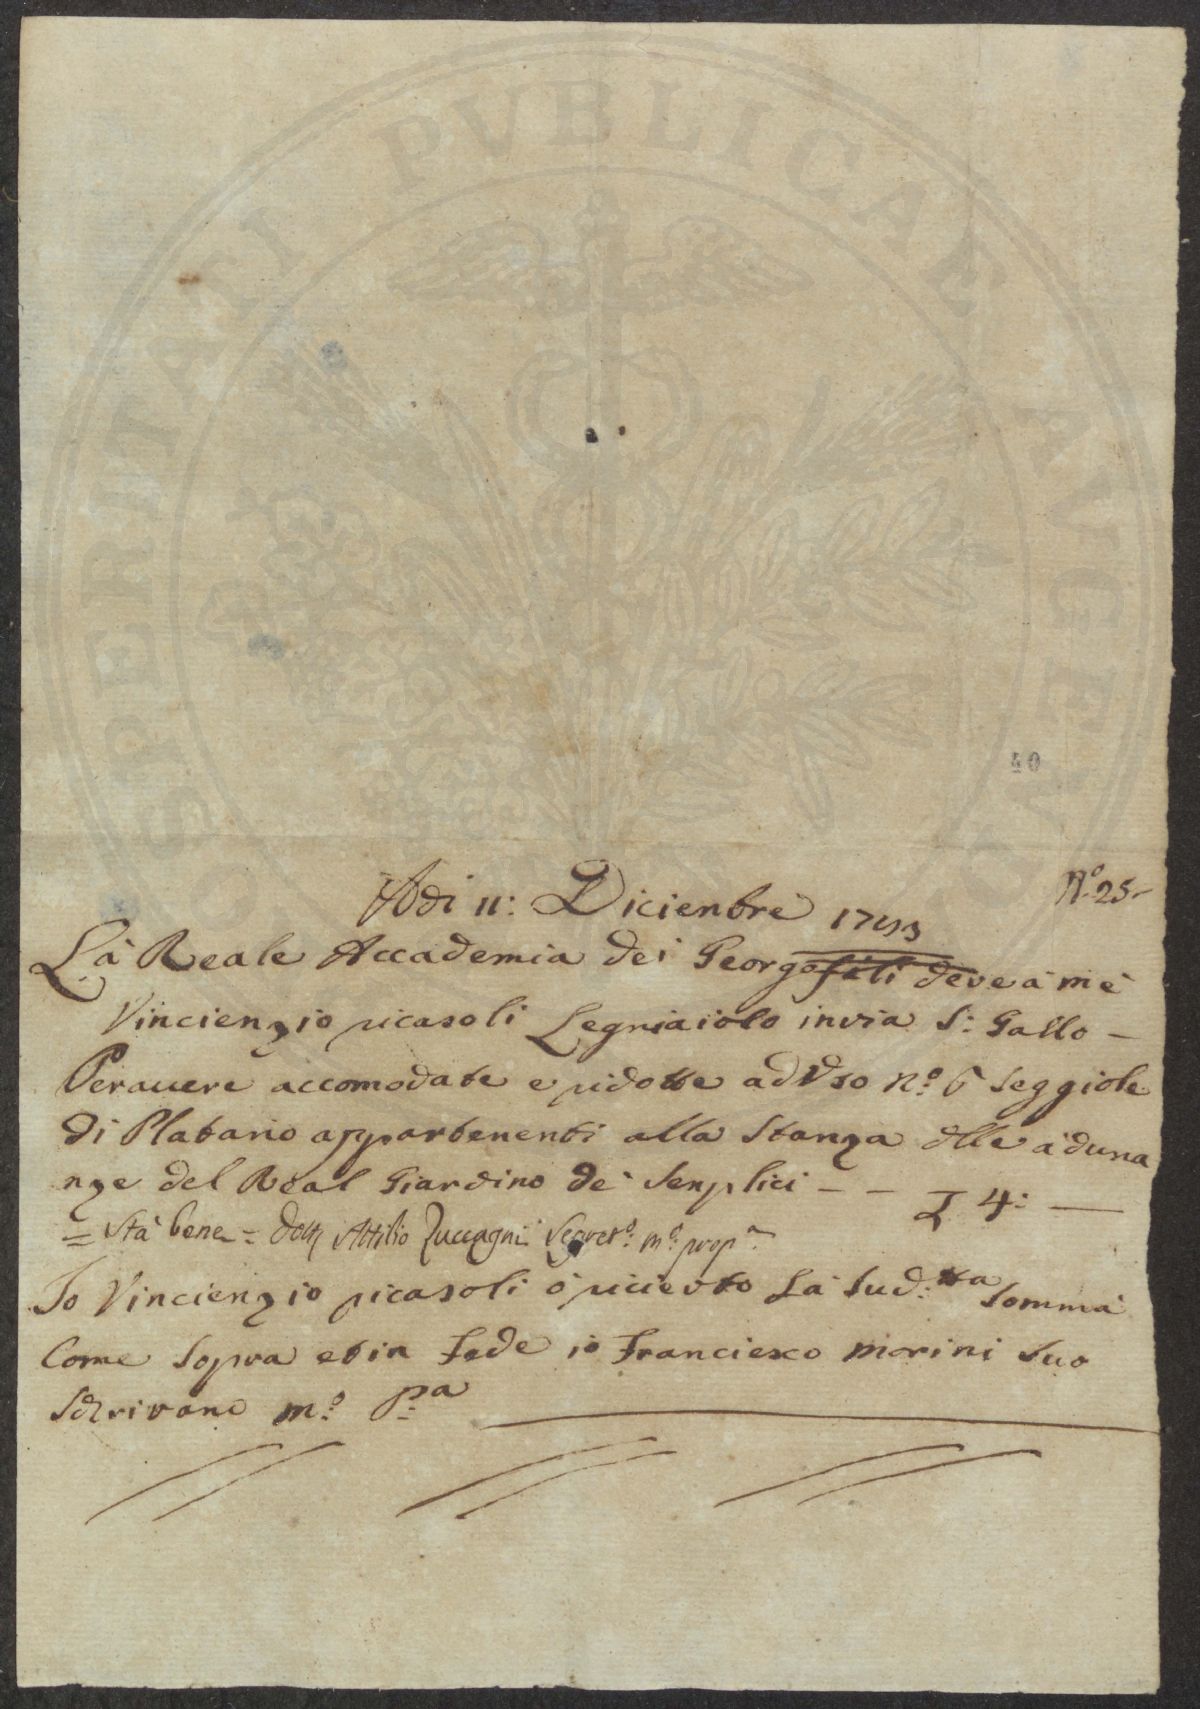 PROSPERITATI PUBLICAE AUGENDAE
40
N.º 25
Adi 11: Diciembre 1793
Là Reale Accademia dei Georgofili deve à mè
Vincienzio picasoli Legniaiolo in via S: Gallo –
Per avere accomodate e ridotte ad Vso nº 6 seggiole
di Platano appartenenti alla Stanza dlle àduna
nze del Real Giardino de' Senplici – – £ 4: —
= Stà bene = Dott. Attilio Zuccagni Segret.º m.º prop.ª
Io Vincienzio picasoli ò ricieuto La Sud:tta Somma
Come Sopra et in Fede io Franciesco morini Suo
Scrivano m.º p.ª